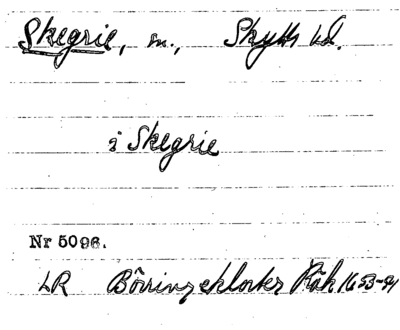 Skegrie, sn., Skytts hd.
i Skegrie
Nr 5096.
LR Börringekloster Räk 1653-91